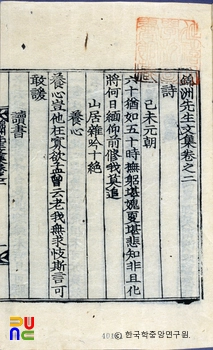 錦洲先生文集卷之二
詩
己未元朝
六十猶如五十時撫躬堪媿更堪悲知非且化
將何日緬仰前修我莫追
山居雜吟十絶
養心
養心豈他枉寡欲孟曾云老我無求忮斯言可
敢諼
讀書
한국학중앙연구원